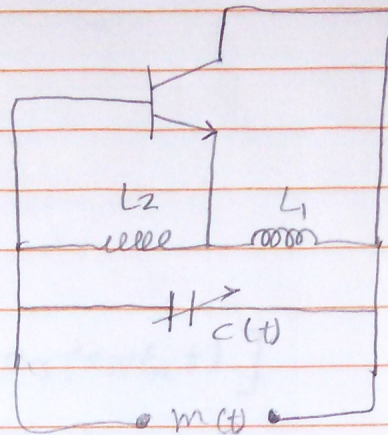 L2 L1
C(t)
m(t)